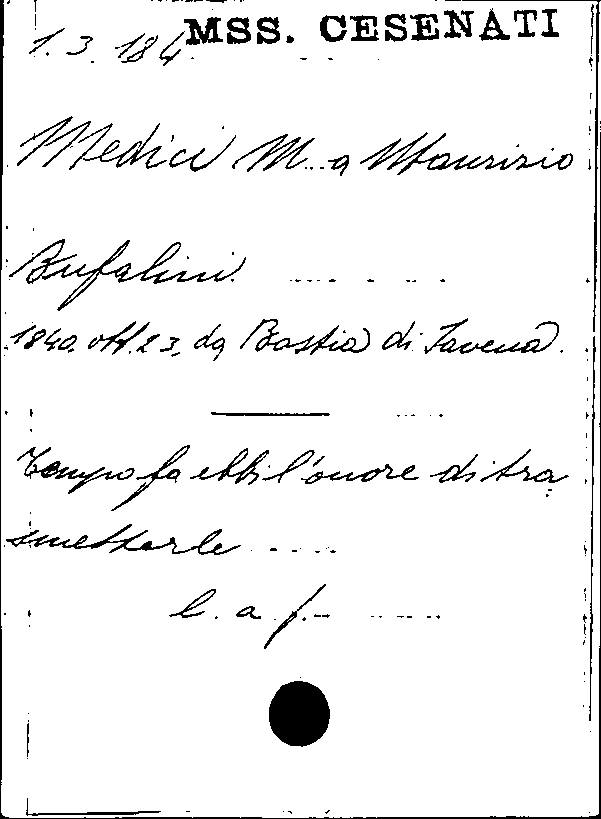 MSS. CESENATI
1.3.184
Medici M. a Maurizio
Bufalini
1840. ott. 23, da Bastia di Savena.
Tempo fa ebbi l'onore di tra
smetterle .....
l. a. f.